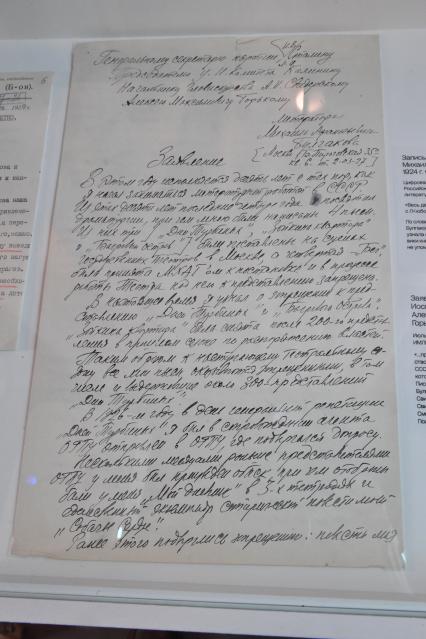 Генеральному секретарю партии Сталину
Председателю Ц.И. Комитета Калинину
Начальнику Главискусства А.И. Свидерскому
Алексею Максимовичу Горькому
Литератора
Михаила Афанасьевича
Булгакова
Москва
Заявление
В этом году исполняется десять лет с тех пор, как
я начал заниматься литературной работой в СССР.
Из этих десяти лет последние четыре года я посвятил
драматургии, при чем мною были написаны 4 пьесы.
Из них три „Дни Турбиных", „Зойкина квартира"
и „Багровый остров" были поставлены на сценах
государственных театров в Москве, а четвертая „Бег",
была принята МХАТ'ом к постановке и в процессе
работы Театра над нею к представлению запрещена.
В настоящее время я узнал о запрещении к пред-
ставлению „Дней Турбиных" и „Багрового Острова".
„Зойкина квартира" была снята после 200-го представ-
ления в прошлом сезоне по распоряжению властей.
Таким образом к настоящему театральному се-
зону все мои пьесы оказываются запрещенными, в том
числе и выдержавшие около 300 представлений
„Дни Турбиных".
В 1926-м году в день генеральной репетиции
„Дней Турбиных" я был в сопровождении агента
ОГПУ отправлен в ОГПУ, где подвергался допросу.
Несколькими месяцами раньше представителями
ОГПУ у меня был произведен обыск, при чем отобраны
были у меня „Мой дневник" в 3-х тетрадях и
единственный экземпляр сатирической повести моей
„Собачье Сердце".
Ранее этого подверглись запрещению: повесть моя
6
(б-ов).
Михаил
1924 г.